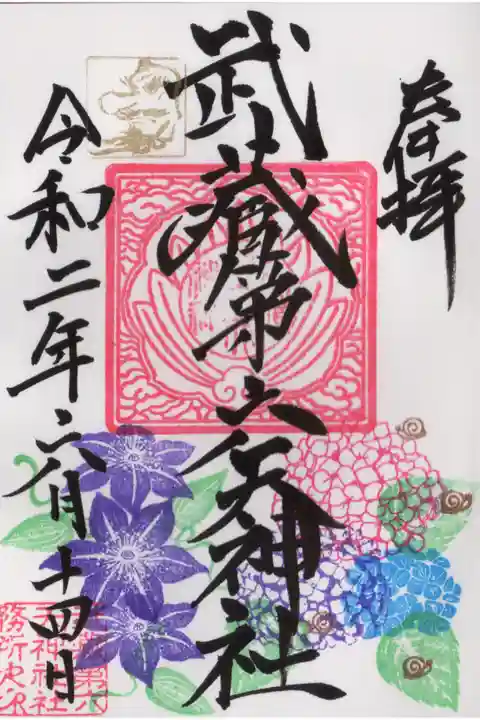 奉拝
武蔵第六天神社
令和二年六月十四日
武蔵第六
天神神社
務所之印